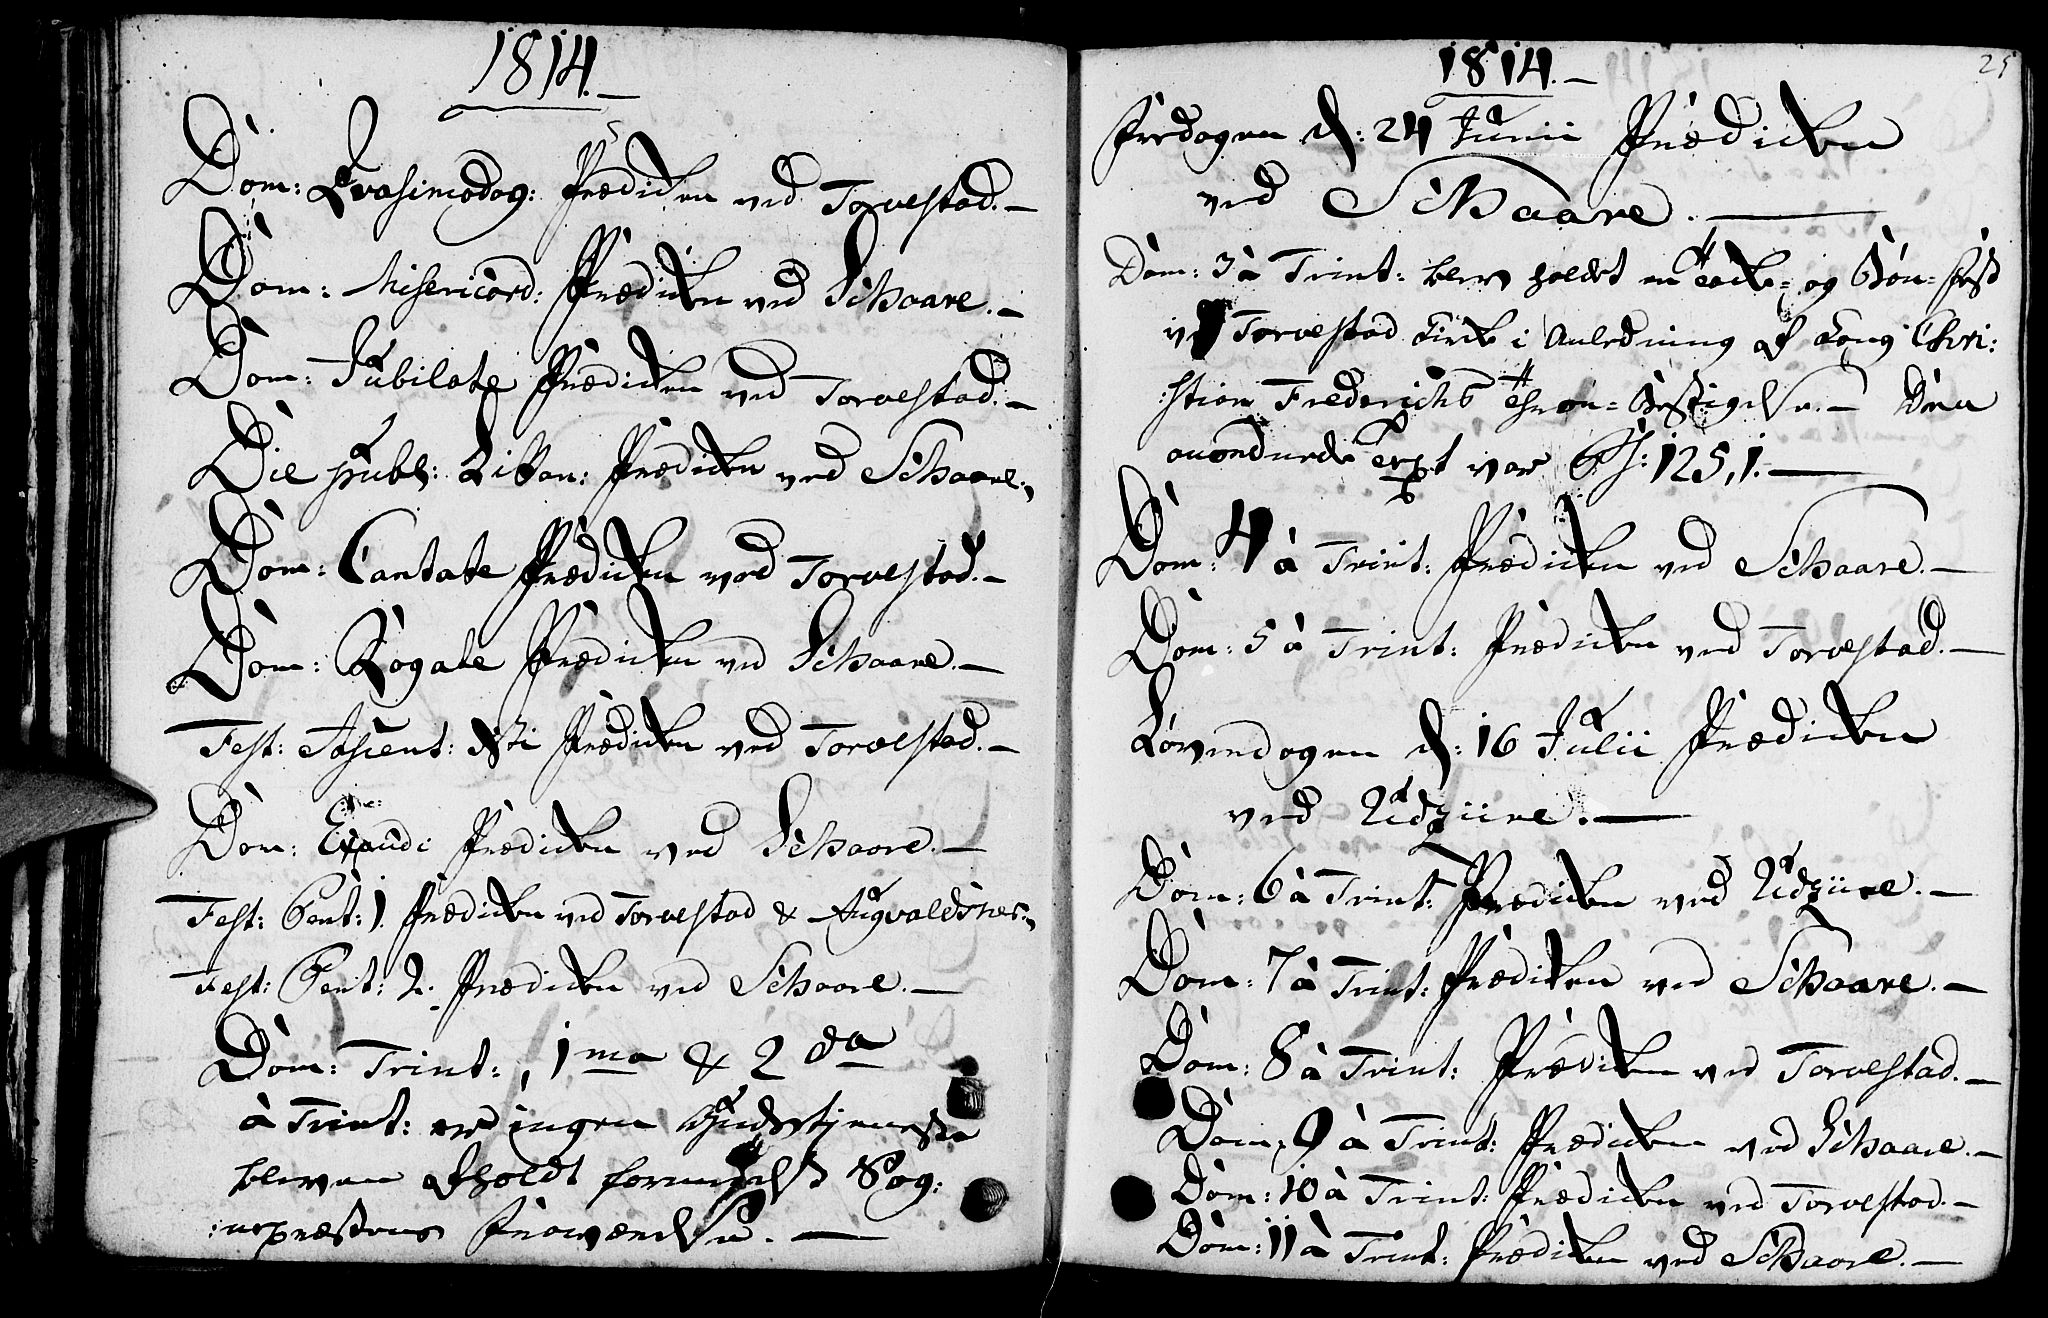 1814.–
Dom: Qvasimodog: Prædiken ved Torvestad.–
Dom: Misericord: Prædiken ved Schaare.–
Dom: Jubilate Prædiken ved Torvestad.–
Die publ: Littan: Prædiken ved Schaare.
Dom: Cantate Prædiken ved Torvestad.–
Dom: Rogate Prædiken ved Schaare.–
Fest: Ascent: Xsti Prædiken ved Torvestad.–
Dom: Exaudi Prædiken ved Schaare.–
Fest: Pent: 1. Prædiken ved Torvestad & Augvaldsnes.
Fest: Pent: 2. Prædiken ved Schaare.–
Dom: Trint:, 1ma & 2da
à Trint: ingen Gudstjeneste
bleven afholdt formedelst Sog:
:nepræstens Fraværelse.–
1814.– 25
Fredagen d: 24 Junii Prædiken
ved Schaare.–
Dom: 3 à Trint: blev holdt en Tacke= og Bøn=Fest
ved Torvestad Kirke i Anledning af Kong Chri:
:stian Frederichs Thron=Bestigelse.– Den
anordnede Text var Ps: 125,1.–
Dom: 4 à Trint: Prædiken ved Schaare.–
Dom: 5 à Trint: Prædiken ved Torvestad.–
Løverdagen d: 16 Julii Prædiken
ved Udziire.–
Dom: 6 à Trint: Prædiken ved Udziire.–
Dom: 7 à Trint: Prædiken ved Schaare.–
Dom: 8 à Trint: Prædiken ved Torvestad.–
Dom: 9 à Trint: Prædiken ved Schaare.–
Dom: 10 à Trint: Prædiken ved Torvestad.–
Dom: 11 à Trint: Prædiken ved Schaare.–